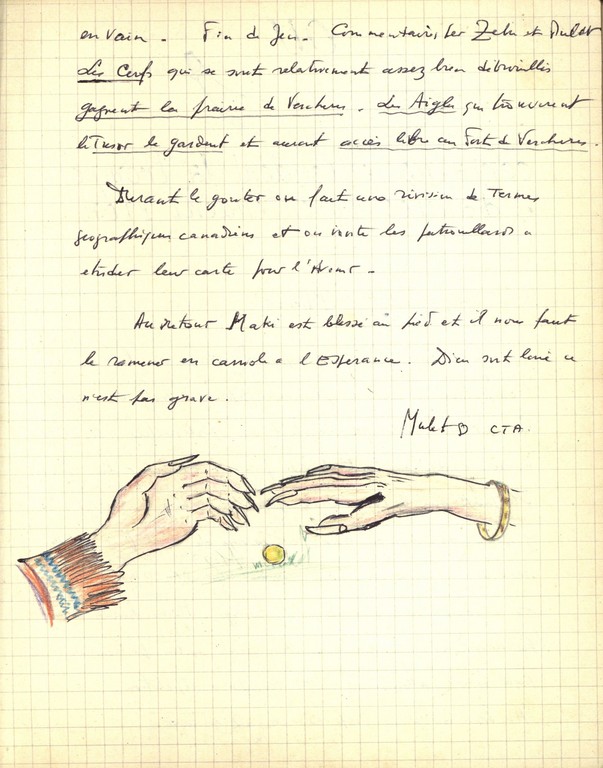 en vain. Fin de Jeu. Commentaires par Zebu et Mulet
Les Cerfs qui se sont relativement assez bien débrouillés
gagnent la prairie de Vercheres. Les Aigles qui trouverent
le Tresor le gardent et auront accès libre au Fort de Vercheres.
Durant le gouter on fait une révision de Termes
geographiques canadiens et on invite les patrouillards a
etudier leur carte pour l'Avenir.
Au retour Maki est blessé au pied et il nous faut
le ramener en carriole a l'Esperance. Dieu soit loué ce
n'est pas grave.
Mulet CTA.